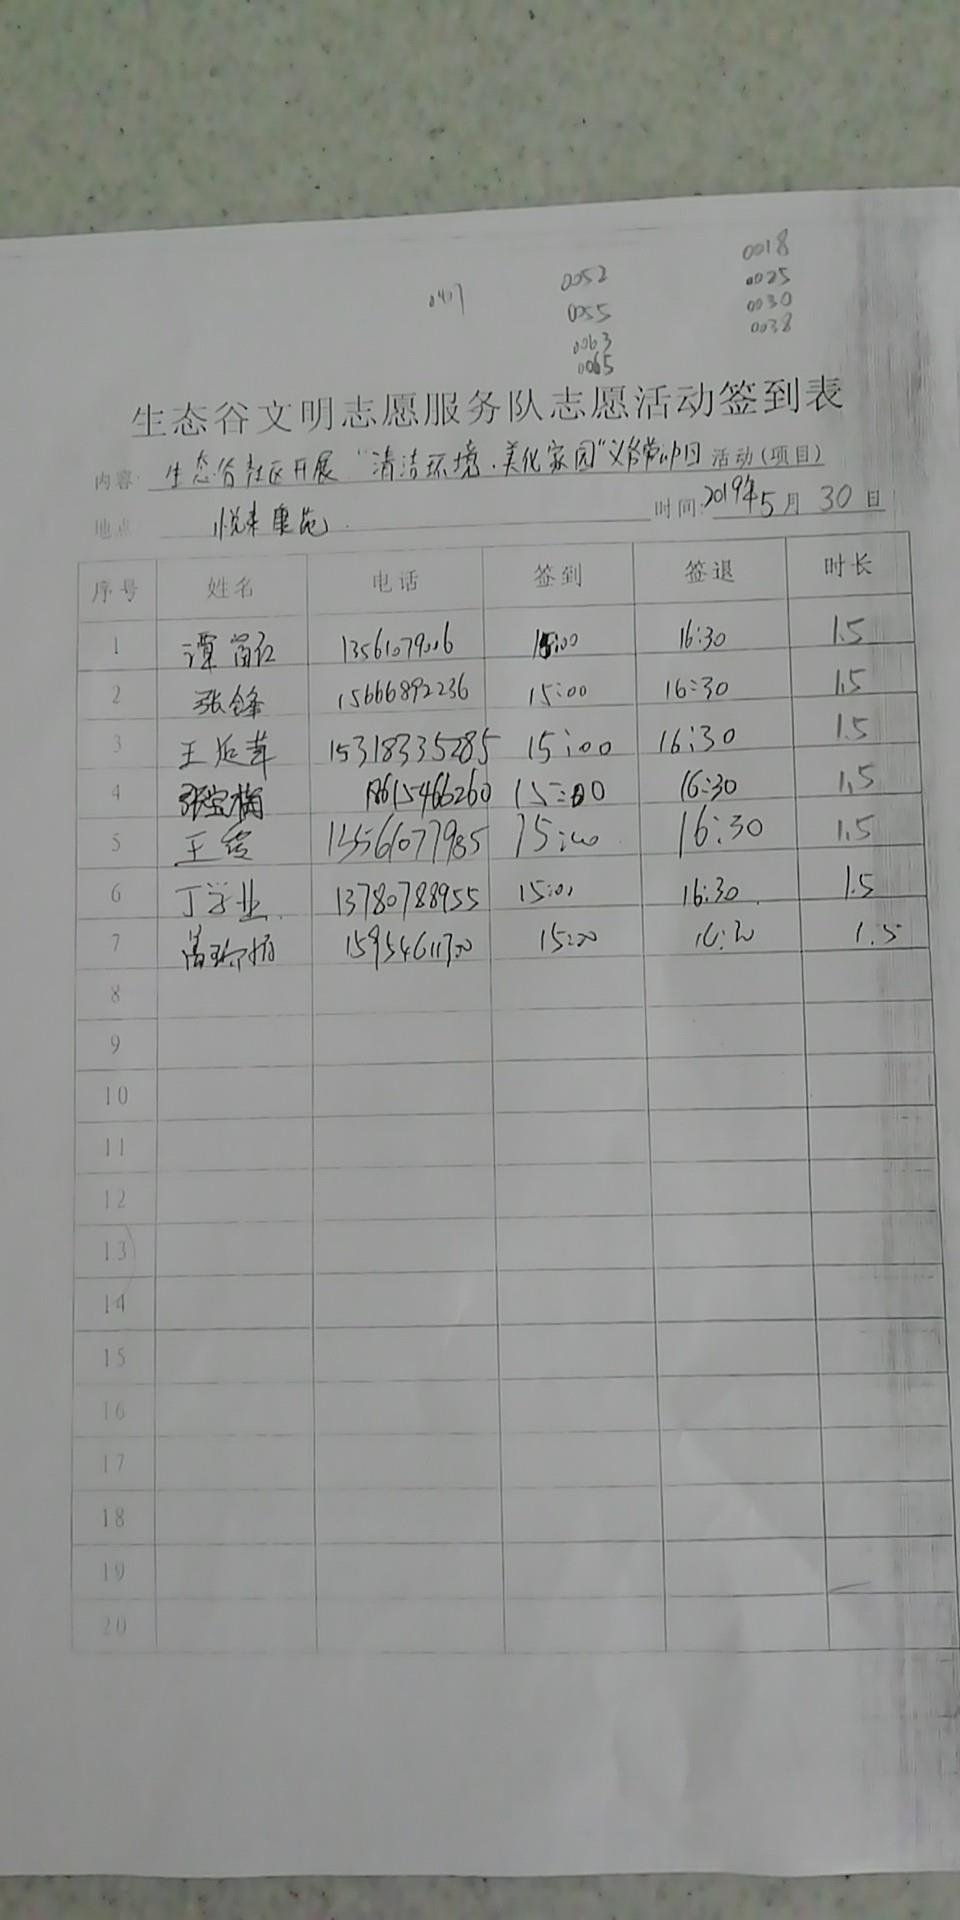 0018
0052 0025
0417 0055 0030
0063 0038
0065
生态谷文明志愿服务队志愿活动签到表
内容: 生态谷社区开展"清洁环境.美化家园" 活动(项目)
地点 悦来康苑. 时间:2019年5月30日
序号 姓名 电话 签到 签退 时长
1 谭 15:00 16:30 1.5
2 张锋 15666892236 15:00 16:30 1.5
3 王 15318335285 15:00 16:30 1.5
4 张宝梅 18615466260 15:00 16:30 1.5
5 王 13561077985 15:00 16:30 1.5
6 丁学业 13780788955 15:00 16:30 1.5
7 15954611700 15:00 16:30 1.5
8
9
10
11
12
13
14
15
16
17
18
19
20